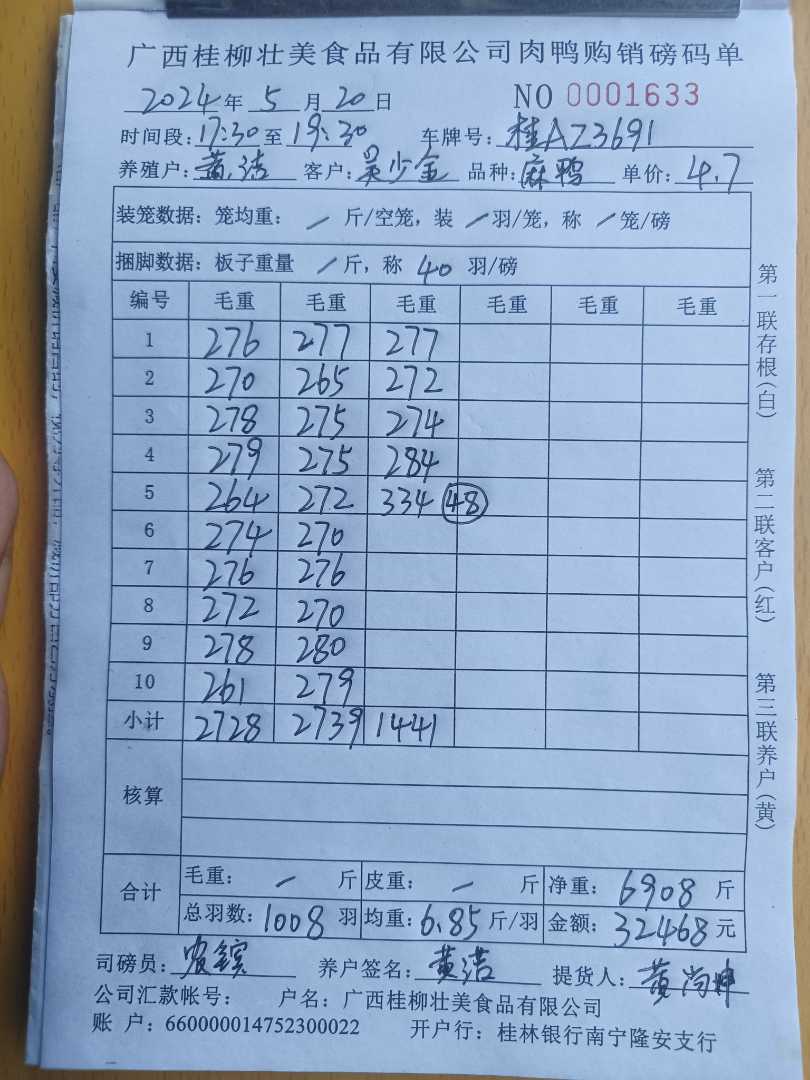 广西桂柳壮美食品有限公司肉鸭购销磅码单
2024年 5月 20日 NO 0001633
时间段:17:30至19:30 车牌号:桂AZ3691
养殖户:黄洁 客户:吴少金 品种:麻鸭 单价:4.7
装笼数据:笼均重: / 斤/空笼,装 / 羽/笼,称 / 笼/磅
捆脚数据:板子重量 / 斤,称 40 羽/磅
编号 毛重 毛重 毛重 毛重 毛重 毛重
1 276 277 277
2 270 265 272
3 278 275 274
4 279 275 284
5 264 272 334 48
6 274 270
7 276 276
8 272 270
9 278 280
10 261 279
小计 2728 2739 1441
核算
合计 毛重: / 斤 皮重: / 斤 净重: 6908 斤
总羽数: 1008 羽 均重: 6.85 斤/羽 金额: 32468 元
司磅员: 养户签名: 黄洁 提货人: 黄尚坤
公司汇款帐号: 户名:广西桂柳壮美食品有限公司
账 户:660000014752300022 开户行:桂林银行南宁隆安支行
第一联存根(白)
第二联客户(红)
第三联养户(黄)